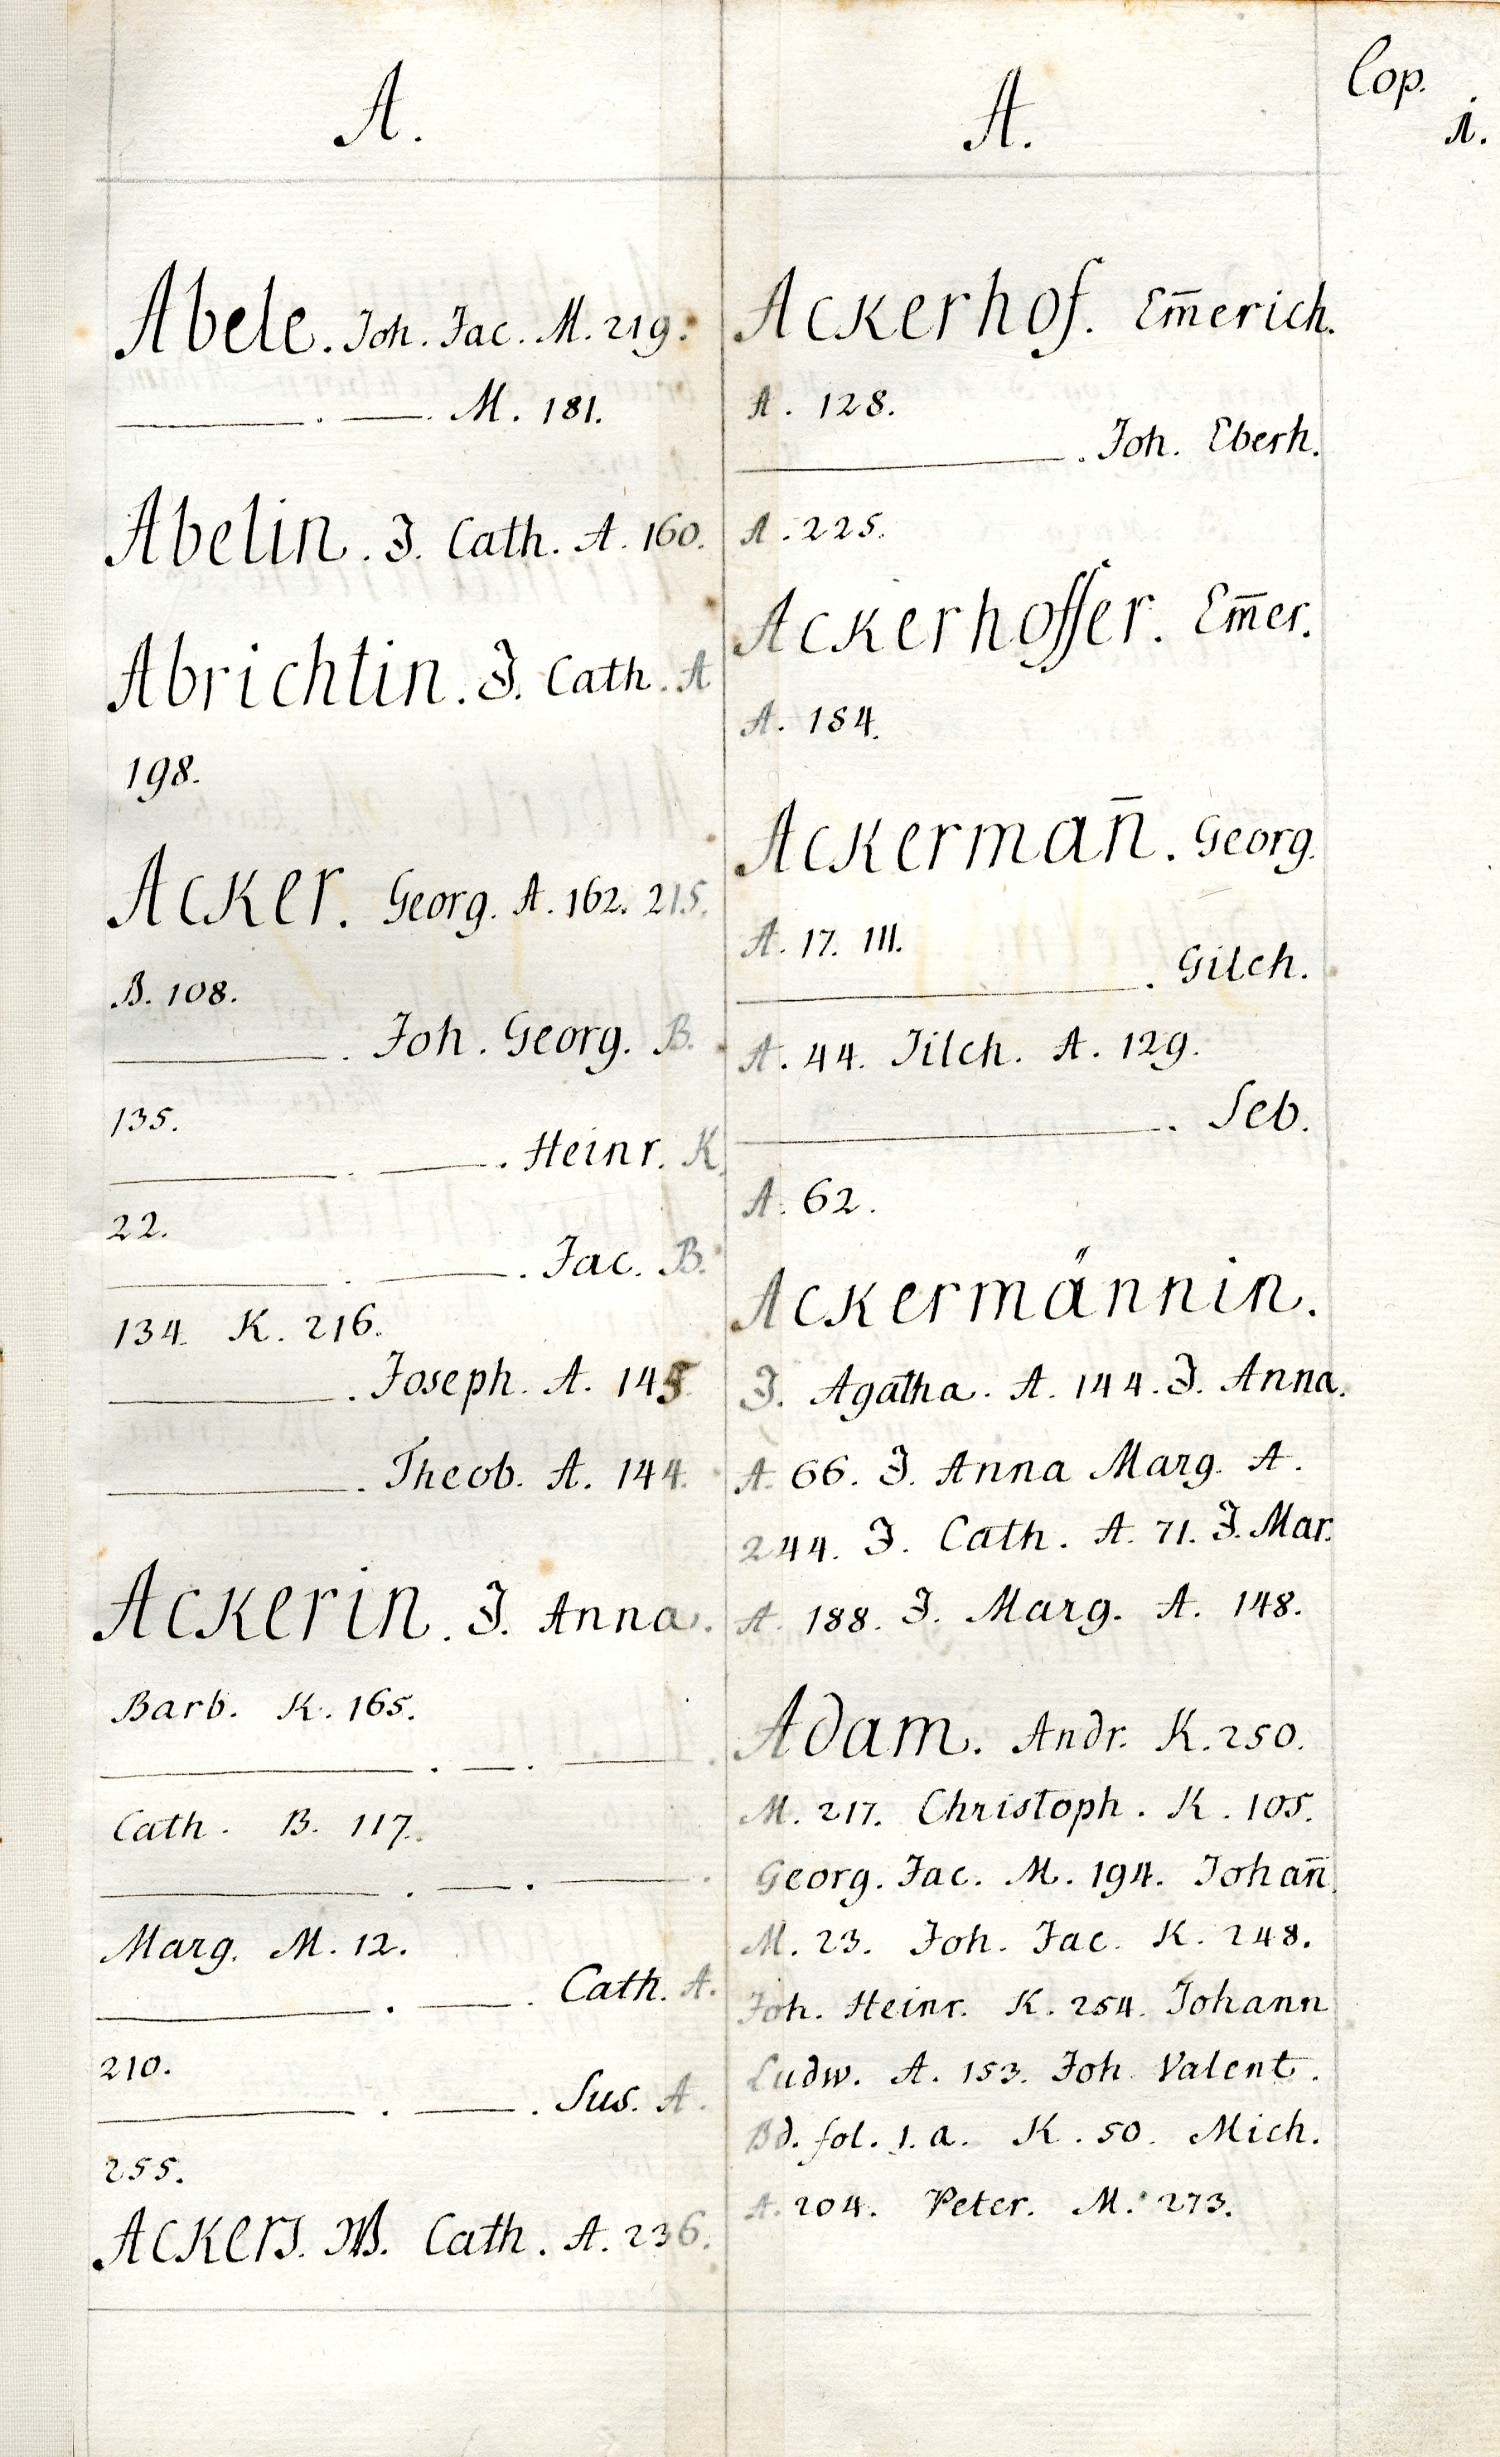 Cop.
1.
A.
Abele. Joh. Jac. M. 219.
———. ——. M. 181.
Abelin. J. Cath. A. 160.
Abrichtin. J. Cath. A
198.
Acker. Georg. A. 162. 215.
B. 108.
———. Joh. Georg. B.
135.
———. ——. Heinr. K.
22.
———. ——. Jac. B.
134. K. 216.
———. Joseph. A. 145.
———. Theob. A. 144.
Ackerin. J. Anna.
Barb. K. 165.
———. —. ——.
Cath. B. 117.
———. —. ——.
Marg. M. 12.
———. ——. Cath. A.
210.
———. ——. Sus. A.
255.
Ackers. W. Cath. A. 236.
A.
Ackerhof. Em̄erich.
A. 128.
———. Joh. Eberh.
A. 225.
Ackerhoffer. Em̄er.
A. 184.
Ackerman̄. Georg.
A. 17. 111.
———. Gilch.
A. 44. Jilch. A. 129.
———. Seb.
A. 62.
Ackermännin.
J. Agatha. A. 144. J. Anna.
A. 66. J. Anna Marg. A.
244. J. Cath. A. 71. J. Mar.
A. 188. J. Marg. A. 148.
Adam. Andr. K. 250.
M. 217. Christoph. K. 105.
Georg. Jac. M. 194. Johan̄
M. 23. Joh. Jac. K. 248.
Joh. Heinr. K. 254. Johann
Ludw. A. 153. Joh. Valent.
Bd. fol. 1. a. K. 50. Mich.
A. 204. Peter. M. 273.